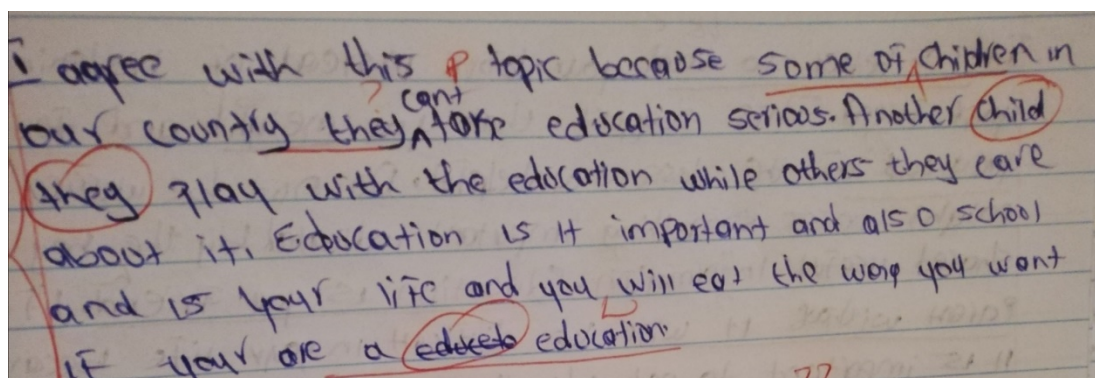 I agree with this topic because some of children in
our country they can't take education serious. Another child
they play with the education while others they care
about it. Education is it important and also school
and is your life and you will eat the way you want
if your are a educeto education.
??